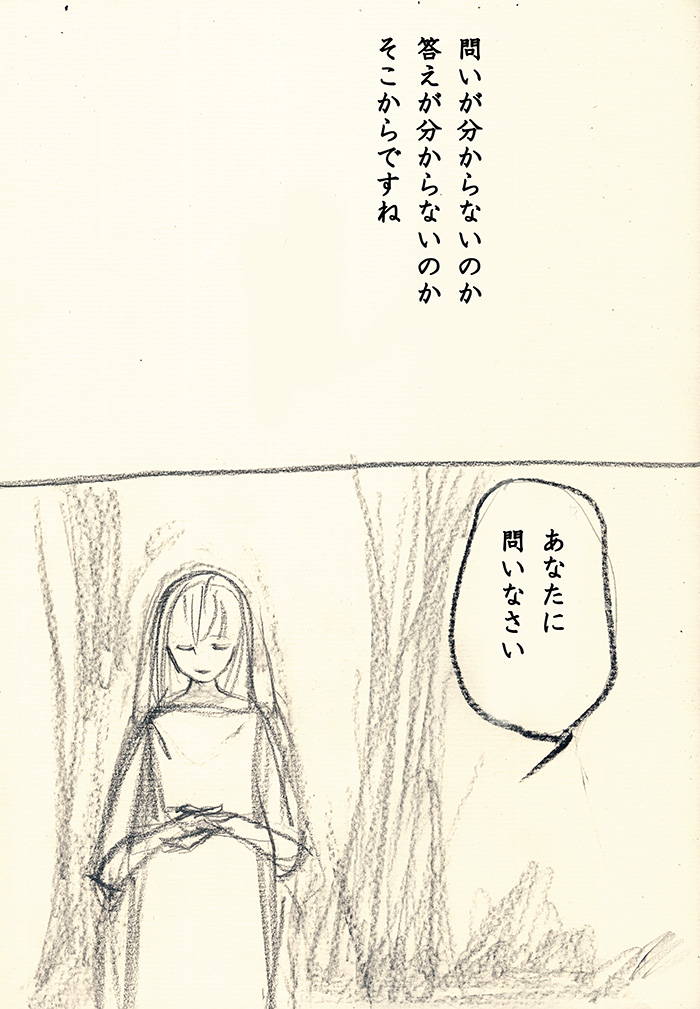 問いが分からないのか
答えが分からないのか
そこからですね
あなたに
問いなさい